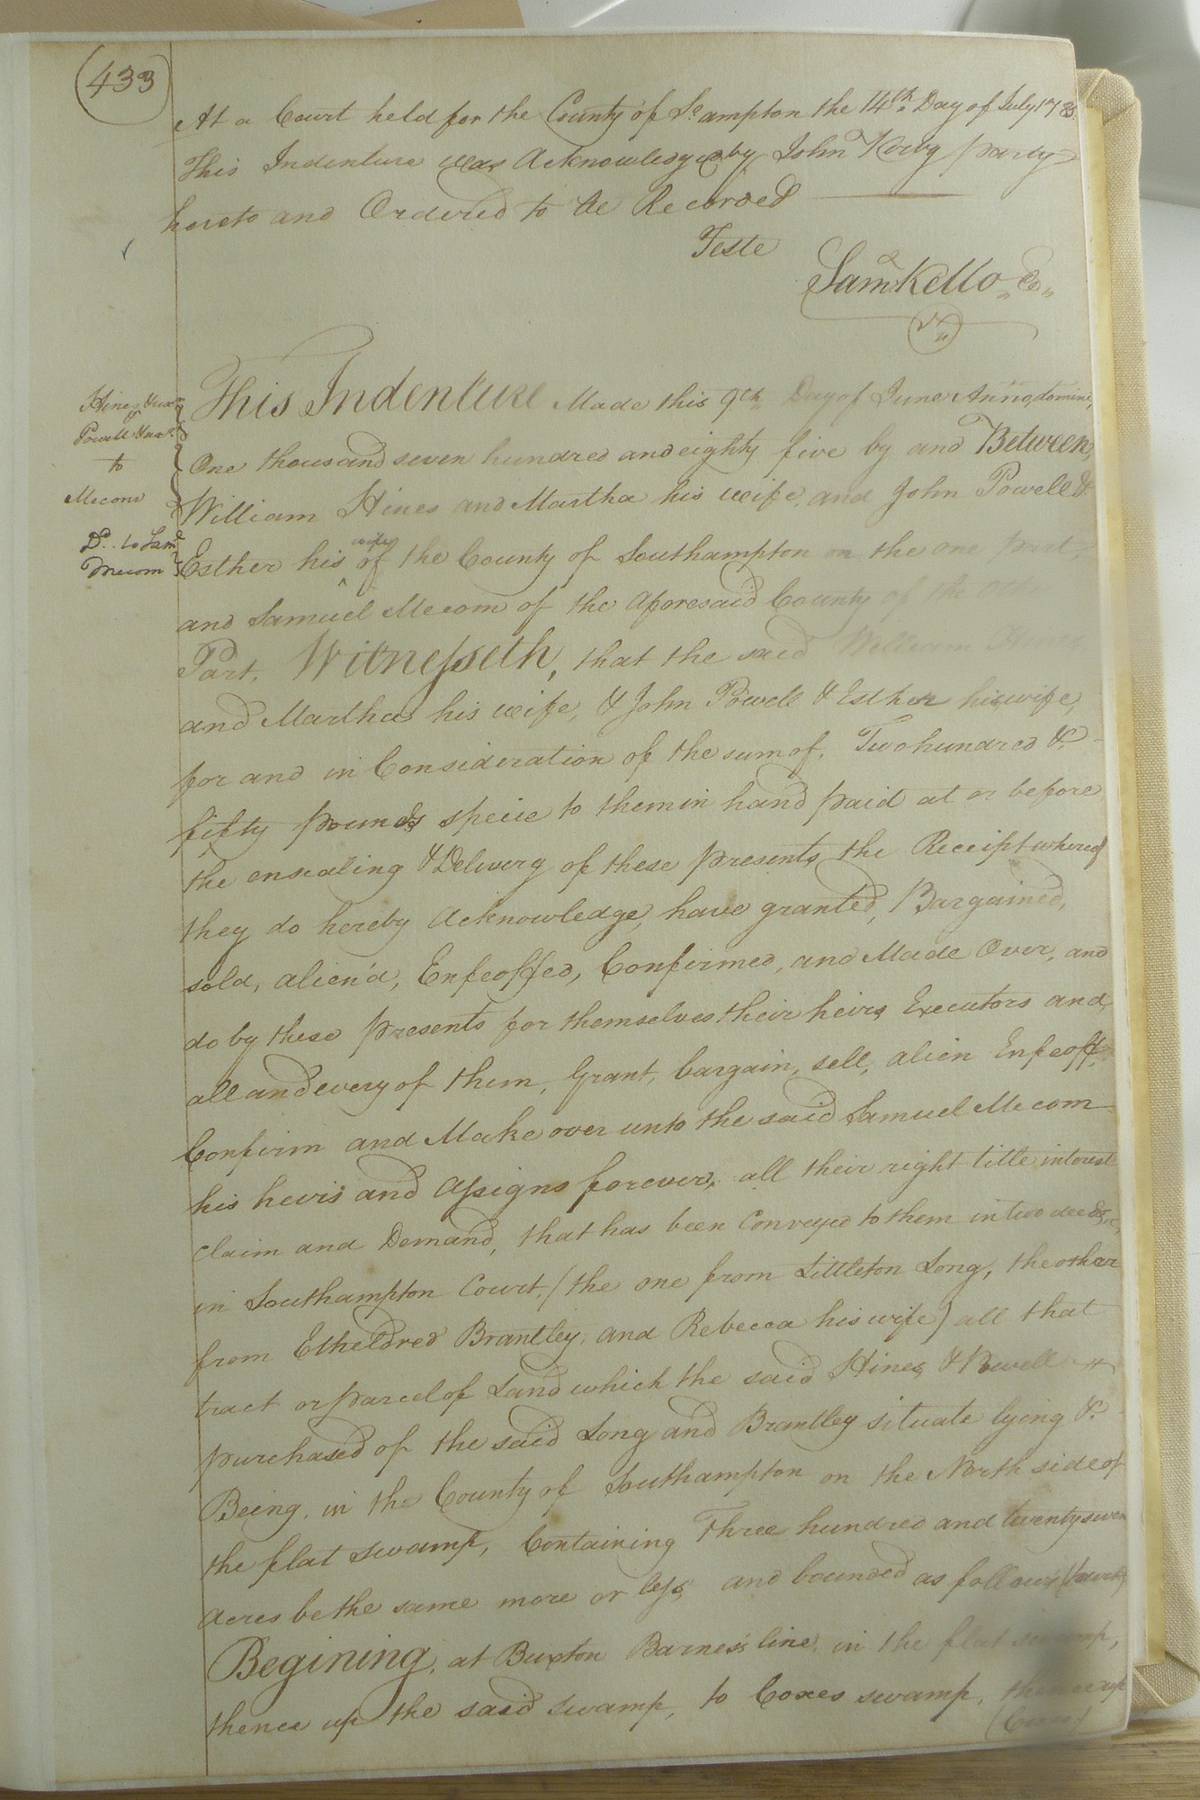 (433)
At a Court held for the County of So ampton the 14th Day of July 1785
This Indenture was Acknowledged by John Kirby party
hereto and Ordered to be Recorded
Teste
Saml Kello Co
Hines & uxr
&
Powell & uxr
to
Mecom
Do. to Saml
Mecom
This Indenture Made this 9th Day of June Anno domini,
One thousand seven hundred and eighty five by and Between,
William Hines and Martha his wife, and John Powell &
Esther his wife of the County of Southampton on the one part
and Samuel Mecom of the Aforesaid County of the Other
Part. Witnesseth, that the said William Hines
and Martha his wife, & John Powell & Esther his wife,
for and in Consideration of the sum of, Two hundred &
fifty pounds specie to them in hand paid at or before
the ensealing & Delivery of these presents the Receipt whereof
they do hereby Acknowledge, have granted, Bargained,
sold, alien'd, Enfeoffed, Confirmed, and Made Over, and
do by these presents for themselves their heirs Executors and
all and every of them, Grant, bargain, sell, alien Enfeoff,
Confirm and Make over unto the said Samuel Mecom
his heirs and Assigns forever, all their right title interest
Claim and Demand, that has been Conveyed to them in two deeds
in Southampton Court, (the one from Littleton Long, the other
from Etheldred Brantley, and Rebecca his wife) all that
tract or parcel of Land which the said Hines & Powell
purchased of the said Long and Brantley situate lying &
Being, in the County of Southampton on the North side of
the flat swamp, Containing Three hundred and twenty seven
Acres be the same more or less and bounded as follows
Begining, at Buxton Barnes's line, in the flat swamp,
thence up the said swamp, to Coxes swamp, thence up